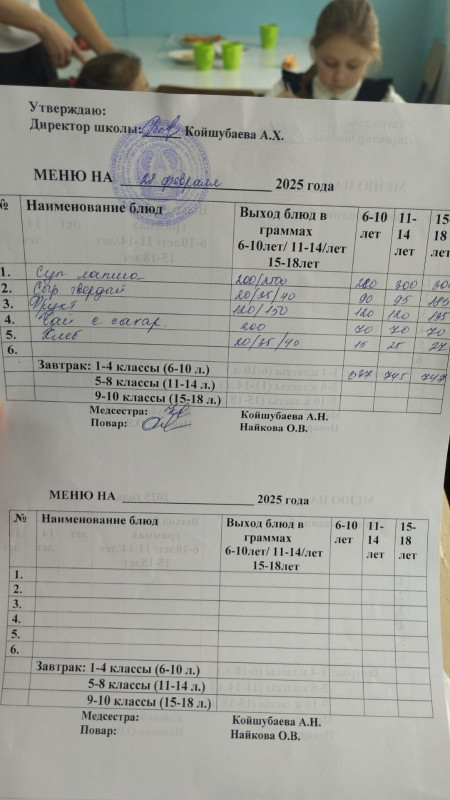 Утверждаю:
Директор школы: Койшубаева А.Х.
МЕНЮ НА 28 февраля 2025 года
№ Наименование блюд Выход блюд в граммах 6-10лет/ 11-14/лет 15-18лет 6-10 лет 11-14 лет 15-18 лет
1. Суп лапша 200/250 280 300 300
2. Сыр твердый 20/35/40 90 95
3. Фрукт 120/150 120 120 135
4. Чай с сахар. 200 70 70 70
5. Хлеб 20/35/40 15 25 27
6.
Завтрак: 1-4 классы (6-10 л.) 745
5-8 классы (11-14 л.)
9-10 классы (15-18 л.)
Медсестра: Койшубаева А.Н.
Повар: Найкова О.В.
МЕНЮ НА 2025 года
№ Наименование блюд Выход блюд в граммах 6-10лет/ 11-14/лет 15-18лет 6-10 лет 11-14 лет 15-18 лет
1.
2.
3.
4.
5.
6.
Завтрак: 1-4 классы (6-10 л.)
5-8 классы (11-14 л.)
9-10 классы (15-18 л.)
Медсестра: Койшубаева А.Н.
Повар: Найкова О.В.